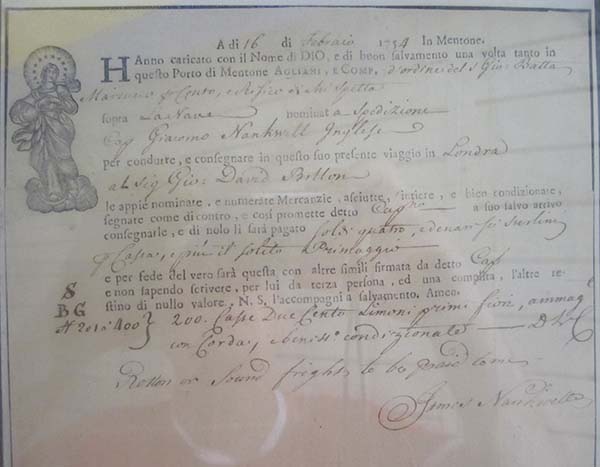 A di 16 di Febraio 1754 In Mentone.
HAnno caricato con il Nome di DIO, e di buon salvamento una volta tanto in
questo Porto di Mentone AGLIANI, e COMP. d'ordine del s Gio: Batta
Conto, e Risico di chi spetta
sopra La Nave nominata Spedizione
Cap Giacomo Nankwell Inglese
per condurre, e consegnare in questo suo presente viaggio in Londra
al Sig Gio: David Billon
le appiè nominate, e numerate Mercanzie, asciutte, intiere, e bien condizionate,
segnate come di contro, e così promette detto Capno a suo salvo arrivo
consegnarle, e di nolo li sarà pagato Soldi quatro, e denari sei Sterlini
p Cassa, e più il solito Primaggio
e per fede del vero sarà questa con altre simili firmata da detto Cap
e non sapendo scrivere, per lui da terza persona, ed una complita, l'altre re-
stino di nullo valore. N. S. l'accompagni a salvamento. Amen.
S
B G
N 201 a 400 } 200. Casse Due Cento Limoni primi fiori, ammag
con Corda, e beniss.o condizionate
Rotton or Sound freight to be paid
James Nankwell